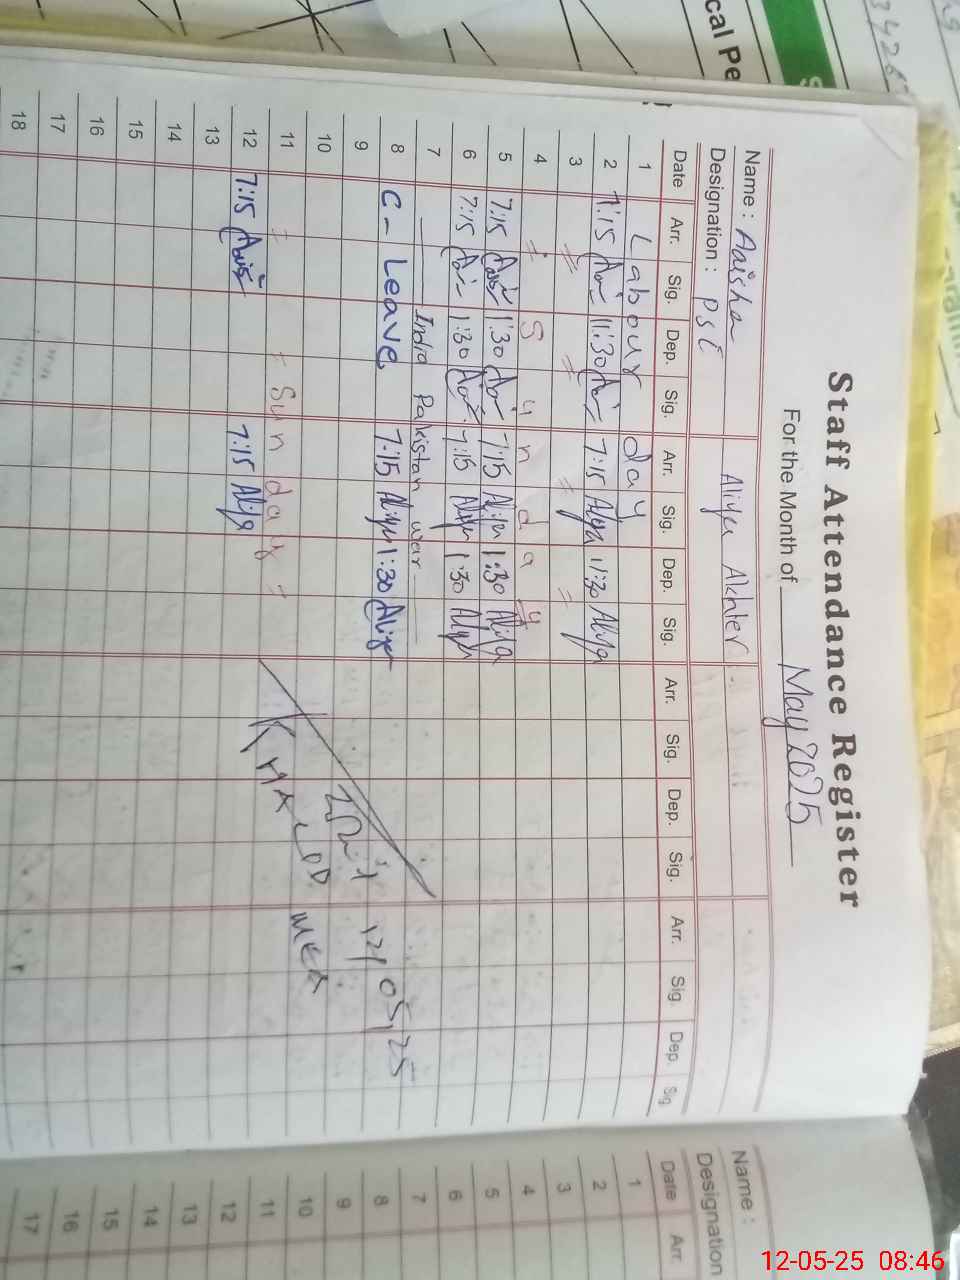 Staff Attendance Register
For the Month of May 2025
Name : Aaisha Aliya Akhter
Designation : PST
Date Arr. Sig. Dep. Sig. Arr. Sig. Dep. Sig. Arr. Sig. Dep. Sig. Arr. Sig. Dep. Sig
1 Labour day
2 7:15 11:30 7:15 Aliya 11:30 Aliya
3 = = = =
4 = Sunday
5 7:15 1:30 7:15 Aliya 1:30 Aliya
6 7:15 1:30 7:15 Aliya 1:30 Aliya
7 India Pakistan war
8 C - Leave 7:15 Aliya 1:30 Aliya
9
10
11 = = Sunday =
12 7:15 7:15 Aliya
13
14
15
16
17
18
Visit 12/05/25
MEA
Name :
Designation
Date Arr.
1
2
3
4
5
6
7
8
9
10
11
12
13
14
15
16
17
cal Pe
12-05-25 08:46